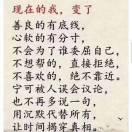 现在的我，变了
善良的有底线，
心软的有分寸，
不会为了谁委屈自己，
不想帮的，直接拒绝，
不喜欢的，绝不靠近。
宁可被人误会议论，
也不再多说一句，
用沉默代替所有，
让时间揭穿真相。